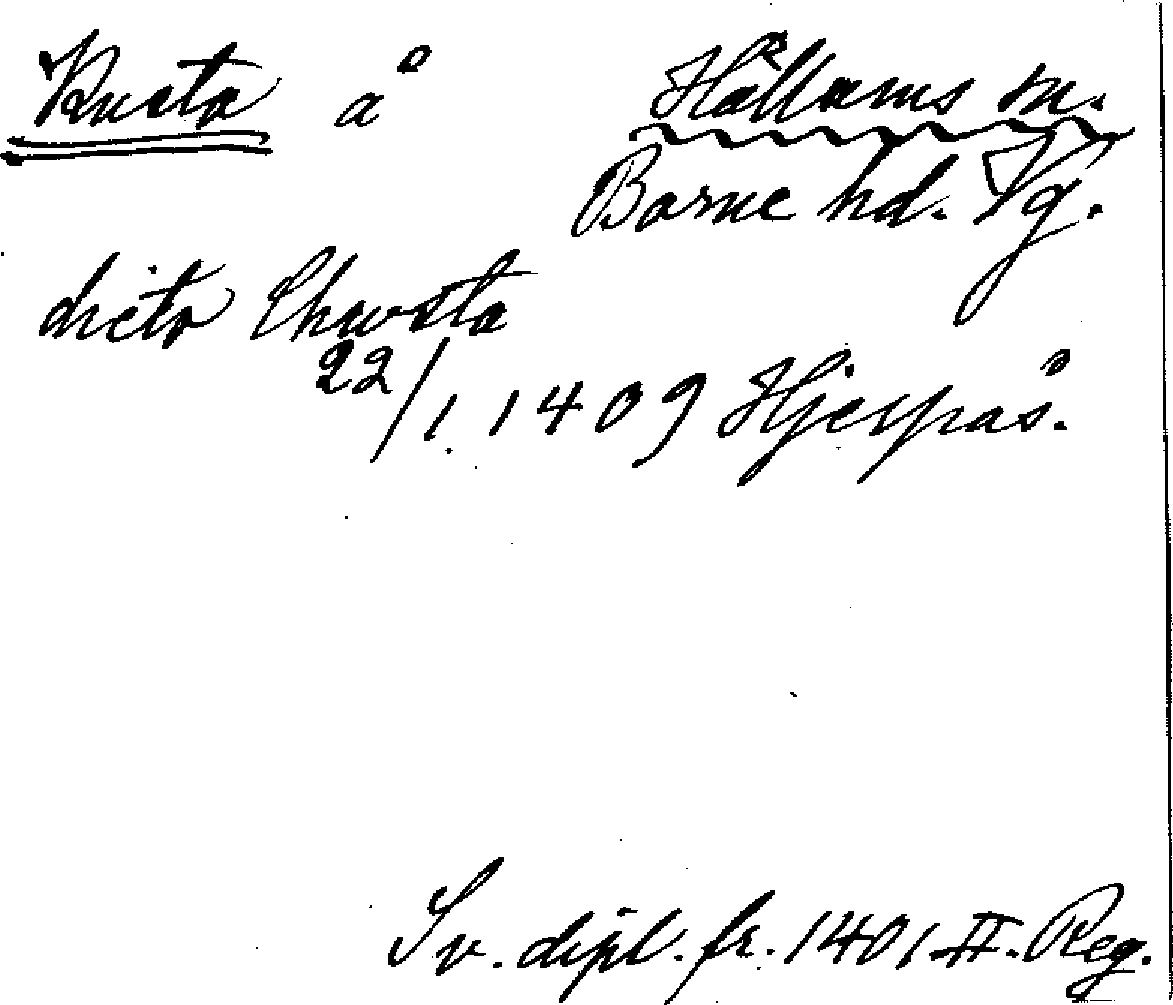 Knsta å Hållams sn.
Barne hd. Vg.
dicto Chnosta
22/1. 1409 Hjerpås.
Sv. dipl. fr. 1401 II. Reg.